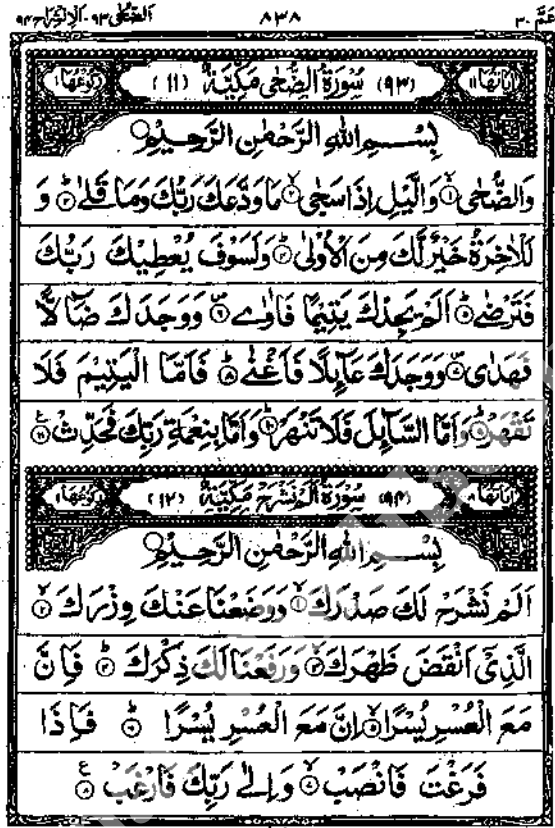 عَمَّ ٣٠ ٨٣٨ الضُّحٰى ٩٣ الانشراح ٩٤
اٰيَاتُهَا ١١ (٩٣) سُوْرَةُ الضُّحٰى مَكِّيَّةٌ (١١) رُكُوْعُهَا ١
بِسْمِ اللّٰهِ الرَّحْمٰنِ الرَّحِيْمِ
وَالضُّحٰى ۙ﴿١﴾ وَالَّيْلِ اِذَا سَجٰى ۙ﴿٢﴾ مَا وَدَّعَكَ رَبُّكَ وَمَا قَلٰى ؕ﴿٣﴾ وَ
لَلْاٰخِرَةُ خَيْرٌ لَّكَ مِنَ الْاُوْلٰى ؕ﴿٤﴾ وَلَسَوْفَ يُعْطِيْكَ رَبُّكَ
فَتَرْضٰى ؕ﴿٥﴾ اَلَمْ يَجِدْكَ يَتِيْمًا فَاٰوٰى ۪﴿٦﴾ وَوَجَدَكَ ضَآلًّا
فَهَدٰى ۪﴿٧﴾ وَوَجَدَكَ عَآئِلًا فَاَغْنٰى ؕ﴿٨﴾ فَاَمَّا الْيَتِيْمَ فَلَا
تَقْهَرْ ؕ﴿٩﴾ وَاَمَّا السَّآئِلَ فَلَا تَنْهَرْ ؕ﴿١٠﴾ وَاَمَّا بِنِعْمَةِ رَبِّكَ فَحَدِّثْ ﴿١١﴾
اٰيَاتُهَا ٨ (٩٤) سُوْرَةُ اَلَمْ نَشْرَحْ مَكِّيَّةٌ (١٢) رُكُوْعُهَا ١
بِسْمِ اللّٰهِ الرَّحْمٰنِ الرَّحِيْمِ
اَلَمْ نَشْرَحْ لَكَ صَدْرَكَ ۙ﴿١﴾ وَوَضَعْنَا عَنْكَ وِزْرَكَ ۙ﴿٢﴾
الَّذِيْۤ اَنْقَضَ ظَهْرَكَ ۙ﴿٣﴾ وَرَفَعْنَا لَكَ ذِكْرَكَ ؕ﴿٤﴾ فَاِنَّ
مَعَ الْعُسْرِ يُسْرًا ۙ﴿٥﴾ اِنَّ مَعَ الْعُسْرِ يُسْرًا ؕ﴿٦﴾ فَاِذَا
فَرَغْتَ فَانْصَبْ ۙ﴿٧﴾ وَاِلٰى رَبِّكَ فَارْغَبْ ﴿٨﴾ ع